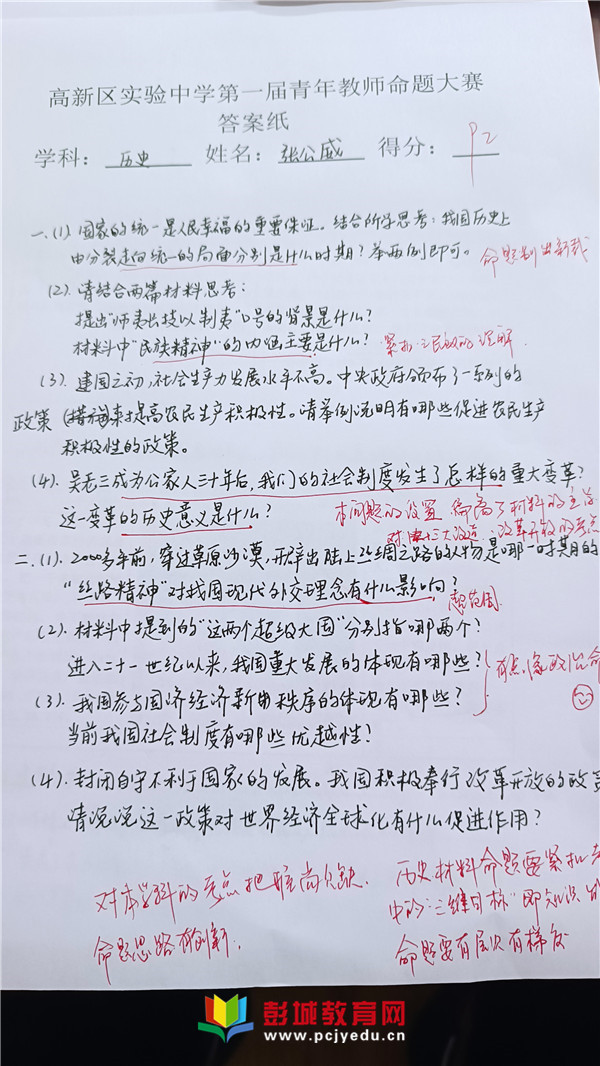 高新区实验中学第一届青年教师命题大赛
答案纸
学科： 历史 姓名： 张公威 得分： 92
一、(1) 国家的统一是人民幸福的重要保证。结合所学思考：我国历史上
由分裂走向统一的局面分别是什么时期？举两例即可。 命题划出新裁
(2). 请结合两篇材料思考：
提出"师夷长技以制夷"口号的背景是什么？
材料中"民族精神"的内涵主要是什么？ 紧扣 的理解.
(3). 建国之初，社会生产力发展水平不高。中央政府颁布了一系列的
政策 (措施)来提高农民生产积极性。请举例说明有哪些促进农民生产
积极性的政策。
(4). 吴老三成为公家人三十年后，我们的社会制度发生了怎样的重大变革？
这一变革的历史意义是什么？ 本问题的设置，偏离了材料的主旨
对 三大改造、改革开放的考点
二、(1). 2000多年前，穿过草原沙漠，开辟出陆上丝绸之路的人物是哪一时期的
"丝路精神"对我国现代外交理念有什么影响？ 超范围.
(2). 材料中提到的"这两个超级大国"分别指哪两个？
进入二十一世纪以来，我国重大发展的体现有哪些？ 有点像政治命
(3). 我国参与国济经济新旧秩序的体现有哪些？
当前我国社会制度有哪些优越性？
(4). 封闭自守不利于国家的发展。我国积极奉行改革开放的政
请说说这一政策对世界经济全球化有什么促进作用？
对本学科的考点把握尚欠缺.
命题思路有创新.
历史材料命题要紧扣
中的"三维目标"即知识
命题要有层次有梯度
彭城教育网
www.pcjyedu.cn